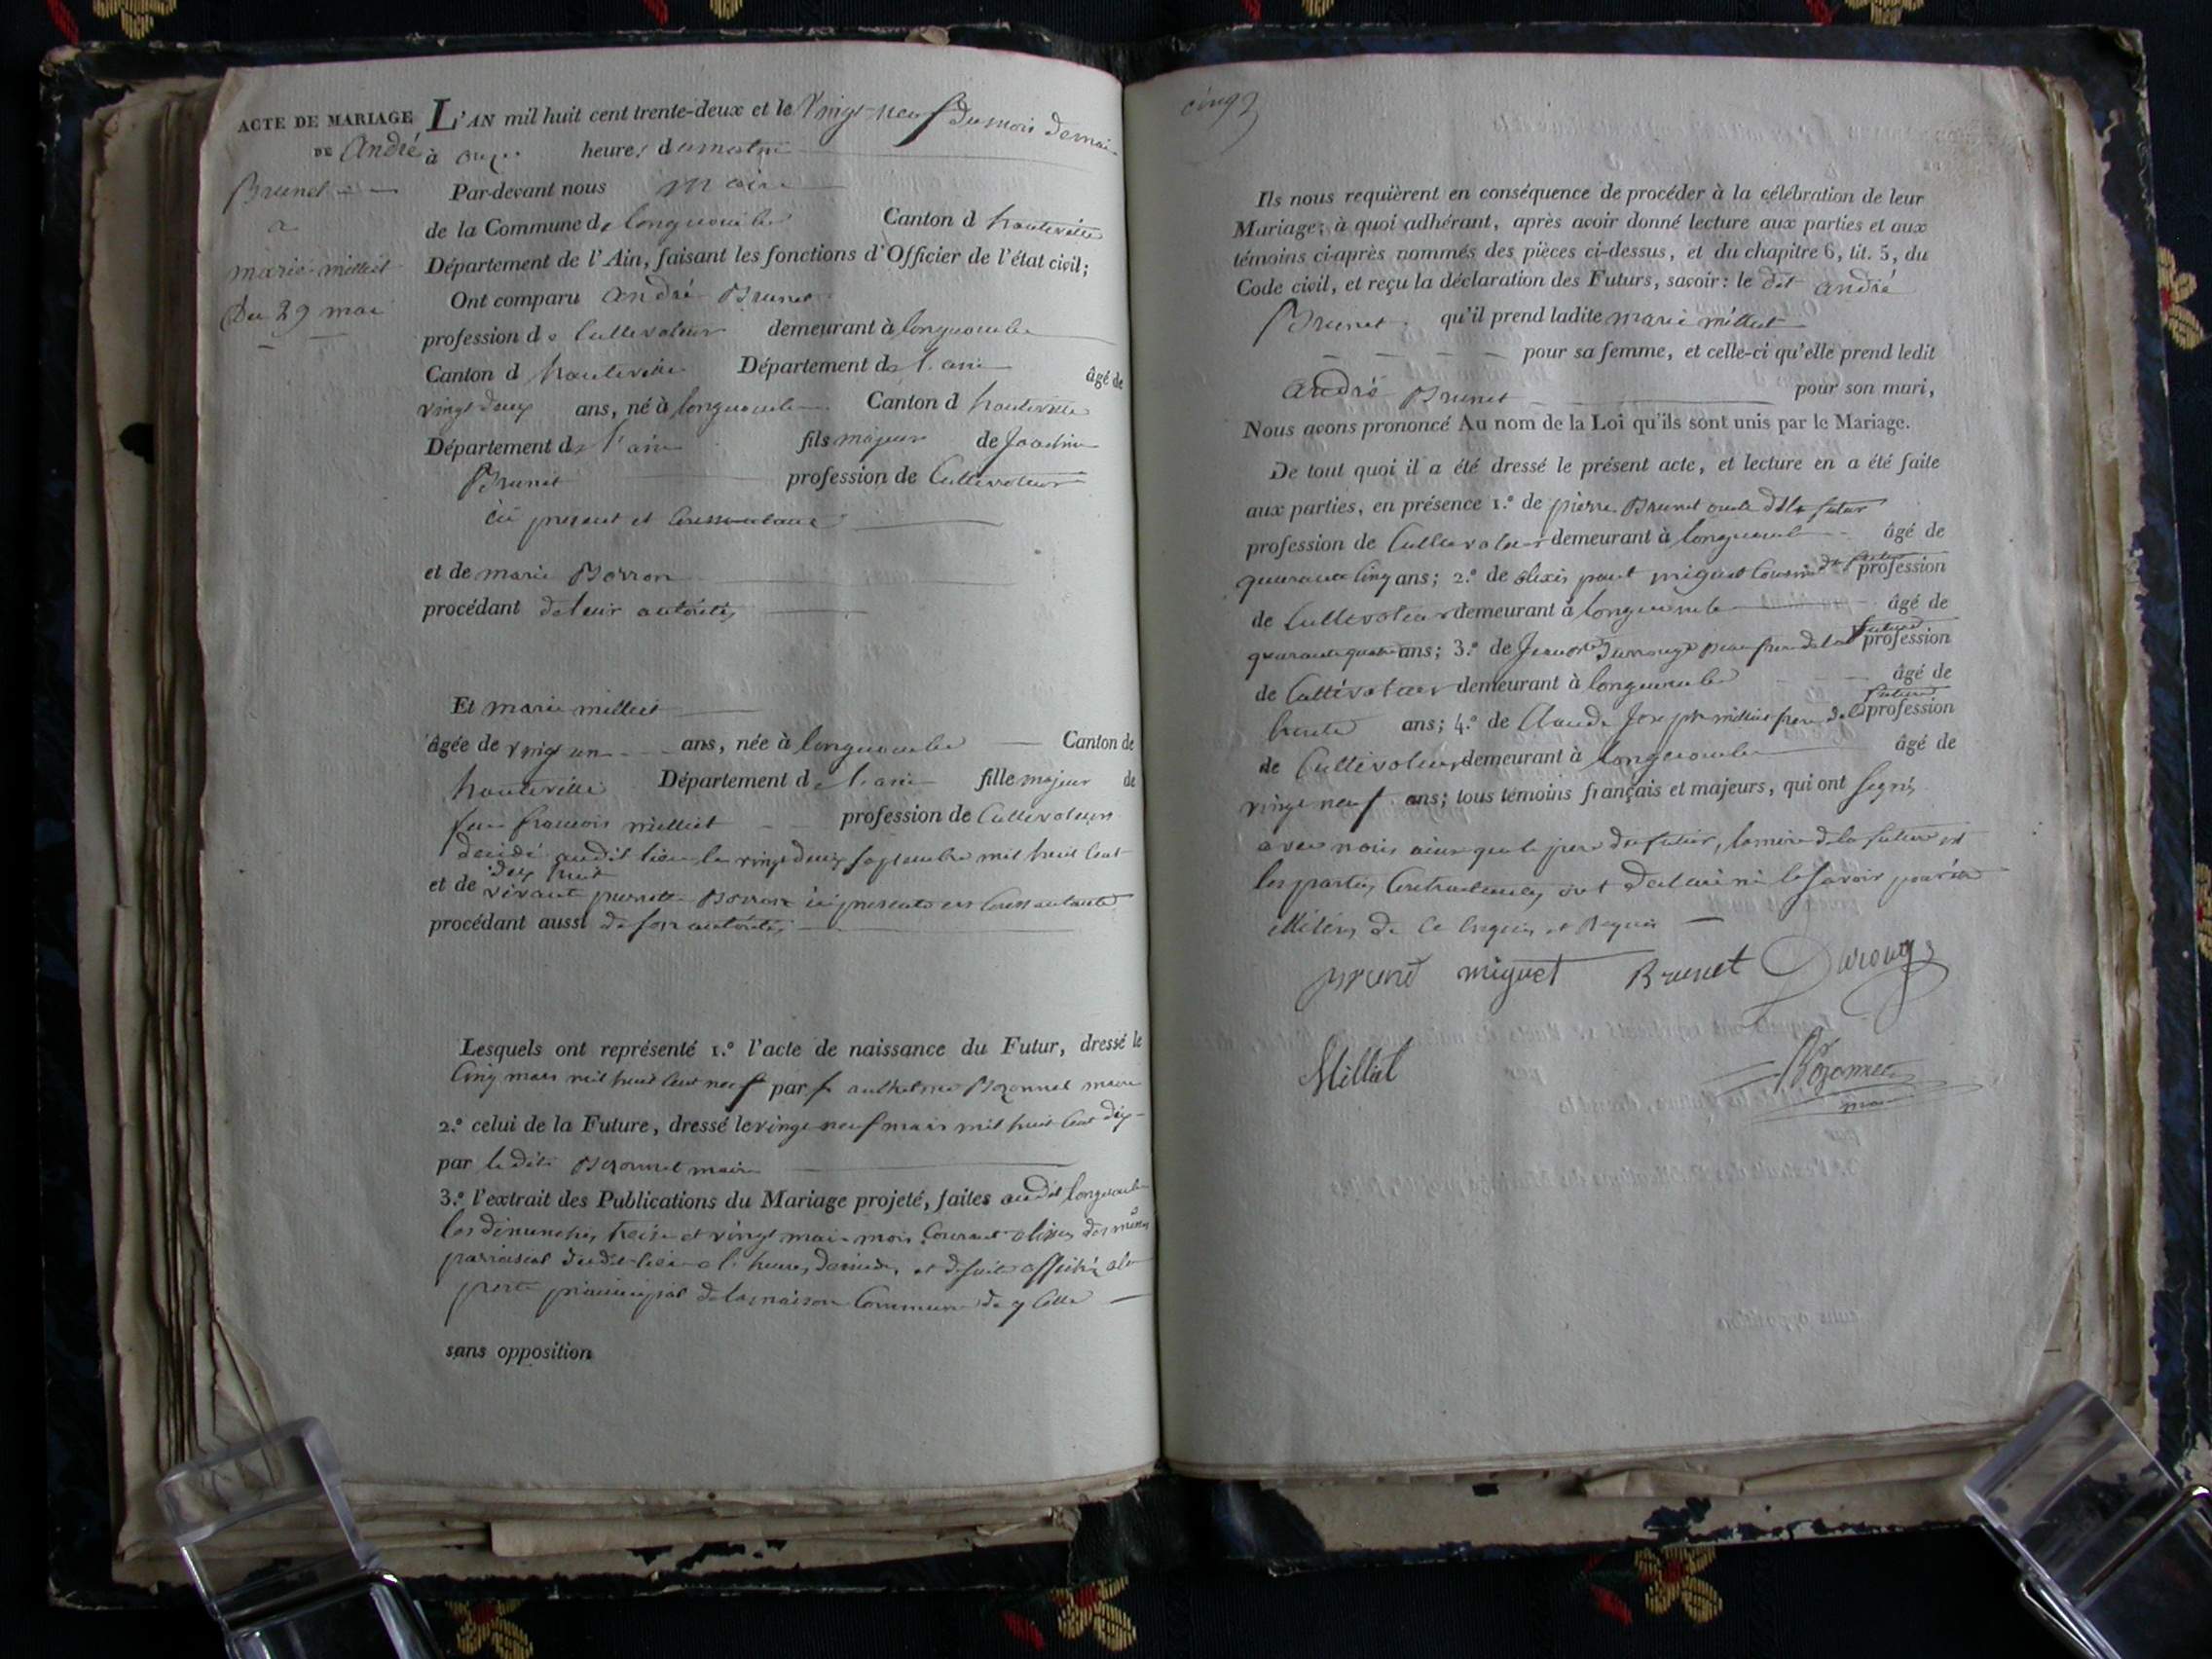 ACTE DE MARIAGE
DE André
Brunet
a
marie milliet
Du 29 mai
L'AN mil huit cent trente-deux et le Vingt-neuf du mois de mai
à onze heures du matin
Par-devant nous maire
de la Commune de longecombe Canton d hauteville
Département de l'Ain, faisant les fonctions d'Officier de l'état civil;
Ont comparu André Brunet
profession de Cultivateur demeurant à longecombe
Canton d hauteville Département de l'ain âgé de
vingt deux ans, né à longecombe Canton d hauteville
Département de l'ain fils majeur de Joachim
Brunet profession de Cultivateur
ici présent et Consentant
et de marie Borron
procédant de leur autorité
Et marie milliet
âgée de vingt un ans, née à longecombe Canton de
hauteville Département de l'ain fille majeur de
feu francois milliet profession de Cultivateur
décédé audit lieu le vingt deux septembre mil huit Cent
dix huit
et de vivante pierrette Borron ici présente et Consentante
procédant aussi de son autorité
Lesquels ont représenté 1.° l'acte de naissance du Futur, dressé le
Cinq mars mil huit Cent neuf par f anthelme Bozonnet maire
2.° celui de la Future, dressé le vingt neuf mars mil huit Cent dix
par ledit Bozonnet maire
3.° l'extrait des Publications du Mariage projeté, faites audit longecombe
les dimanches treize et vingt mai mois Courant
dudit lieu a l'heure de midi, et de suite affiché a la
porte principal de la maison Commune
sans opposition
cinq
Ils nous requièrent en conséquence de procéder à la célébration de leur
Mariage; à quoi adhérant, après avoir donné lecture aux parties et aux
témoins ci-après nommés des pièces ci-dessus, et du chapitre 6, tit. 5, du
Code civil, et reçu la déclaration des Futurs, savoir: le dit andré
Brunet qu'il prend ladite marie milliet
pour sa femme, et celle-ci qu'elle prend ledit
André Brunet pour son mari,
Nous avons prononcé Au nom de la Loi qu'ils sont unis par le Mariage.
De tout quoi il a été dressé le présent acte, et lecture en a été faite
aux parties, en présence 1.° de pierre Brunet oncle futur
profession de Cultivateur demeurant à longecombe âgé de
quarante Cinq ans; 2.° de alexis miguet Cousin du futur profession
de Cultivateur demeurant à longecombe âgé de
quarante quatre ans; 3.° de beau frere de la future profession
de Cultivateur demeurant à longecombe âgé de
trente ans; 4.° de Claude Joseph milliet frere de la future profession
de Cultivateur demeurant à longecombe âgé de
vingt neuf ans; tous témoins français et majeurs, qui ont signé
avec nous ainsi que le pere du futur, la mere de la future et
les parties Contractantes ont declaré ne le savoir pour être
illiteres de Ce Enquis et Requis
Brunet miguet Brunet
Milliet
Bozonnet
maire